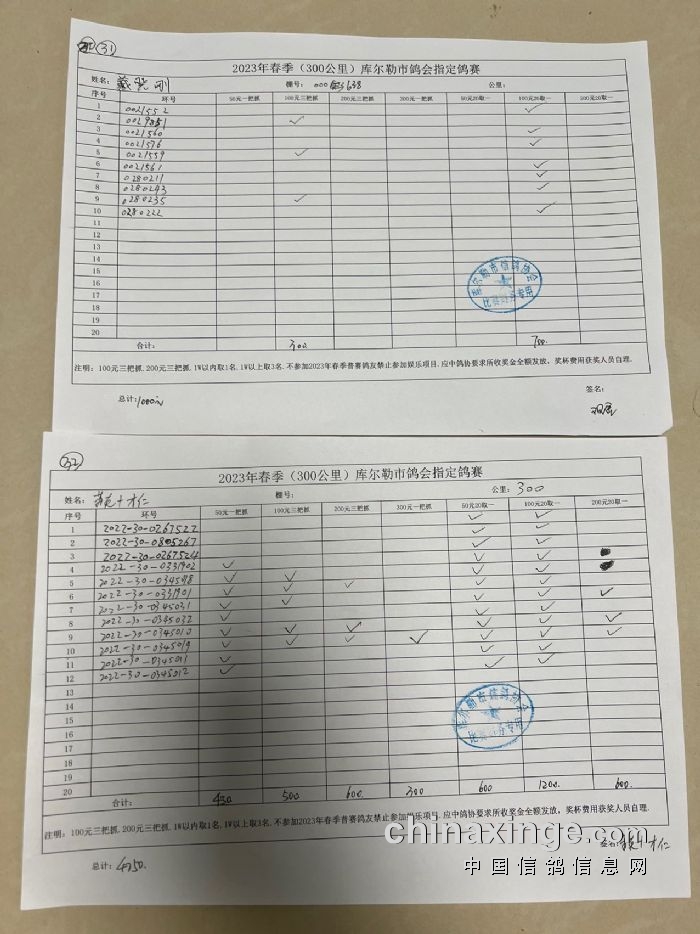 31
2023年春季（300公里）库尔勒市鸽会指定鸽赛
姓名： 棚号： 公里：
序号 环号 50元一把抓 100元三把抓 200元三把抓 300元一把抓 50元20取一 100元20取一 500元20取一
1 0021552 ✓
2 ✓
3 0021560 ✓
4 0021576 ✓
5 0021559 ✓
6 0021561 ✓
7 0280211 ✓
8 0280243 ✓
9 0280235 ✓
10 0280222 ✓
11
12
13
14
15
16
17
18
19
20
合计： 300 700
库尔勒市信鸽协会
比赛财务专用
注明：100元三把抓.200元三把抓.1W以内取1名.1W以上取3名.不参加2023年春季普赛鸽友禁止参加娱乐项目.应中鸽协要求所收奖金全额发放，奖杯费用获奖人员自理.
总计：1000元 签名：
32
2023年春季（300公里）库尔勒市鸽会指定鸽赛
姓名： 才仁 棚号： 公里：300
序号 环号 50元一把抓 100元三把抓 200元三把抓 300元一把抓 50元20取一 100元20取一 200元20取一
1 2022-30-0267522 ✓ ✓
2 2022-30-0805267 ✓ ✓
3 2022-30-0267524 ✓ ✓
4 2022-30-0331902 ✓ ✓ ✓
5 2022-30-0345018 ✓ ✓ ✓ ✓ ✓
6 2022-30-0331901 ✓ ✓ ✓ ✓ ✓
7 2022-30-0345031 ✓ ✓ ✓
8 2022-30-0345032 ✓ ✓ ✓ ✓ ✓ ✓
9 2022-30-0345010 ✓ ✓ ✓ ✓ ✓ ✓ ✓
10 2022-30-0345019 ✓ ✓ ✓
11 2022-30-0345011 ✓ ✓ ✓
12 2022-30-0345012 ✓
13
14
15
16
17
18
19
20
合计： 450 500 600 300 600 1200 600
库尔勒市信鸽协会
比赛财务专用
注明：100元三把抓.200元三把抓.1W以内取1名.1W以上取3名.不参加2023年春季普赛鸽友禁止参加娱乐项目.应中鸽协要求所收奖金全额发放，奖杯费用获奖人员自理.
总计：4250. 签名： 才仁
chinaxinge.com
中国信鸽信息网